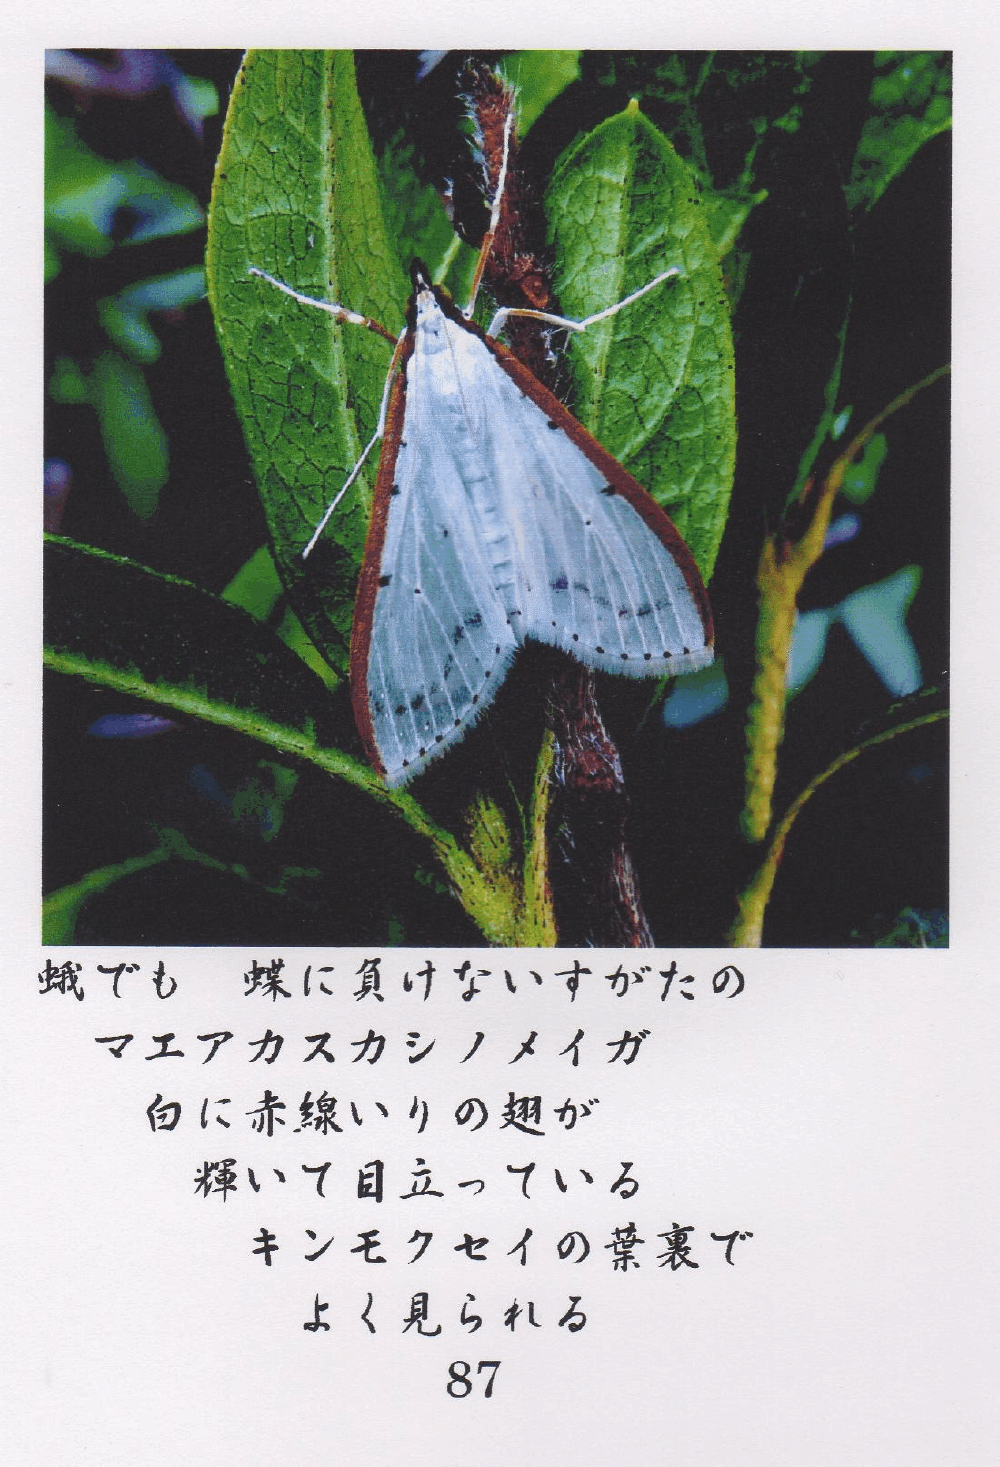 蛾でも　蝶に負けないすがたの
マエアカスカシノメイガ
白に赤線いりの翅が
輝いて目立っている
キンモクセイの葉裏で
よく見られる
87